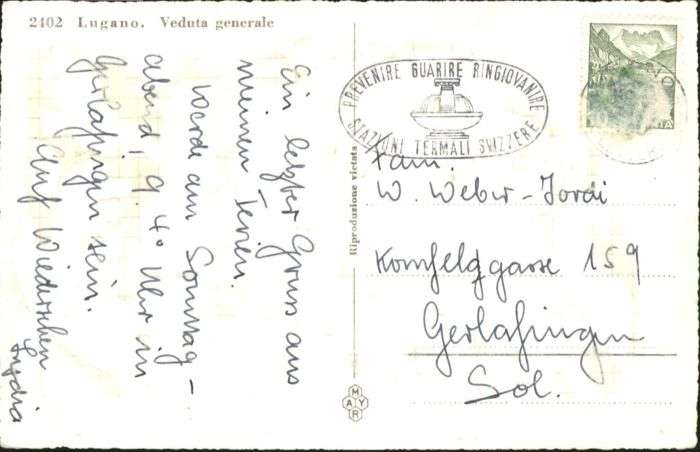 2402 Lugano. Veduta generale
Ein letzter Gruss aus
meinen Ferien.
Werde am Sonntag-
abend, 9.40 Uhr in
Gerlafingen sein.
Auf Wiedersehen
Lydia
PREVENIRE GUARIRE RINGIOVANIRE
STAZIONI TERMALI SVIZZERE
Riproduzione vietata
MAYR
Fam.
W. Weber-Jordi
Kornfeldgasse 159
Gerlafingen
Sol.